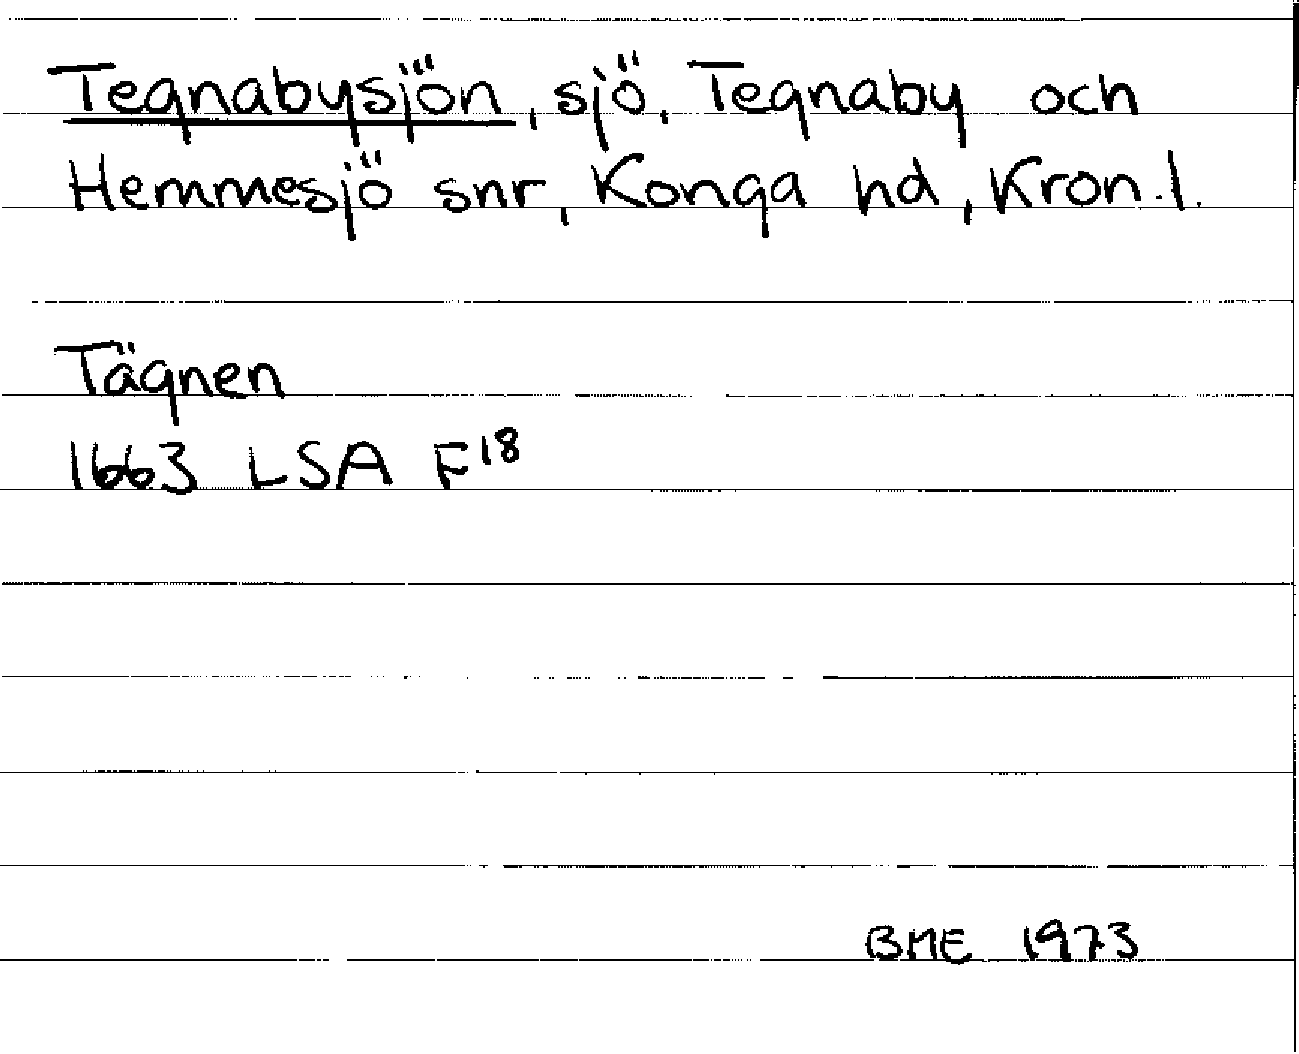 Tegnabysjön, sjö, Tegnaby och
Hemmesjö snr, Konga hd, Kron. l.
Tägnen
1663 LSA F18
BME 1973